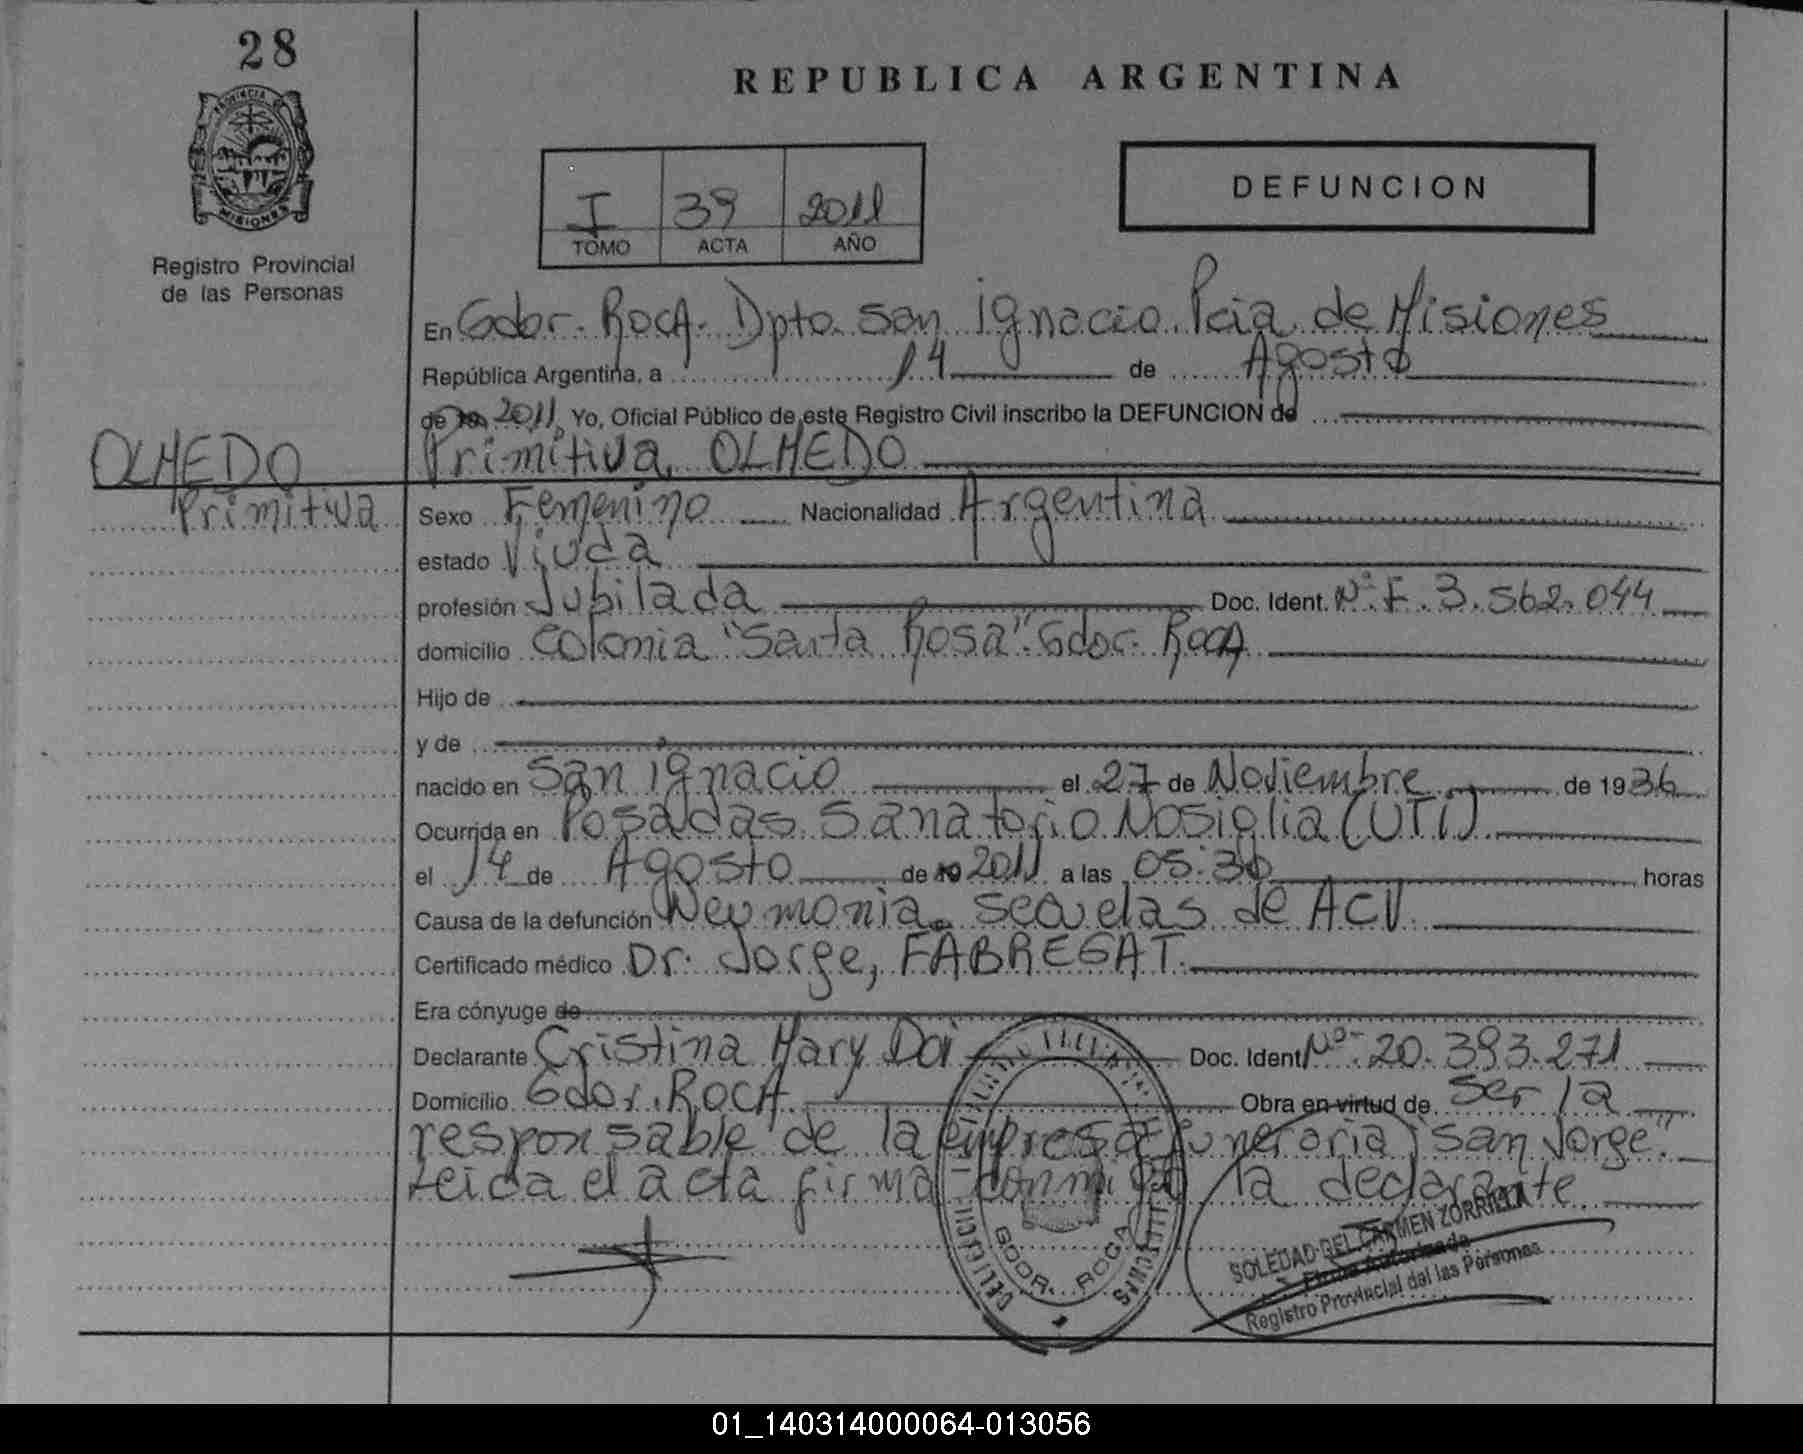 28
REPUBLICA ARGENTINA
PROVINCIA DE
MISIONES
Registro Provincial
de las Personas
I 39 2011
TOMO ACTA AÑO
DEFUNCION
En Gdor. Roca. Dpto. San Ignacio. Pcia. de Misiones
República Argentina, a 14 de Agosto
de 19 2011 Yo, Oficial Público de este Registro Civil inscribo la DEFUNCION de
OLMEDO
Primitiva, OLMEDO
Primitiva
Sexo Femenino Nacionalidad Argentina
estado Viuda
profesión Jubilada Doc. Ident. Nº F. 3.562.044
domicilio Colonia "Santa Rosa" Gdor. Roca
Hijo de
y de
nacido en San Ignacio el 27 de Noviembre de 1936
Ocurrida en Posadas Sanatorio Nosiglia (UTI)
el 14 de Agosto de 19 2011 a las 05:30 horas
Causa de la defunción Neumonia. secuelas de ACV.
Certificado médico Dr. Jorge, FABREGAT.
Era cónyuge de
Declarante Cristina Mary Doi Doc. Ident Nº 20.393.271
Domicilio Gdor. Roca Obra en virtud de ser la
responsable de la empresa funeraria "San Jorge".
Leida el acta firma conmigo la declarante
GDOR. ROCA
SOLEDAD DEL CARMEN ZORRILLA
Firma Autorizada
Registro Provincial del las Personas
01_140314000064-013056